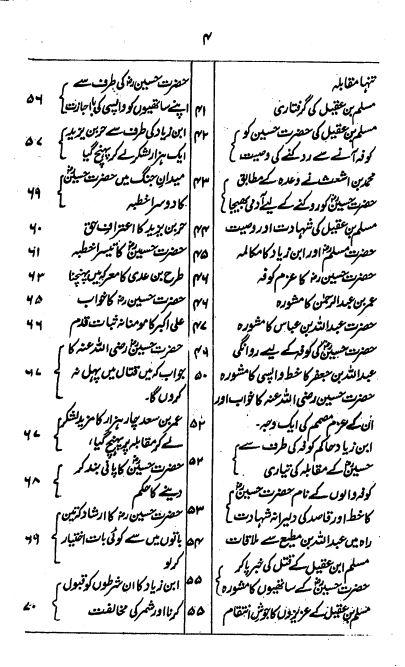 ۴
تنہا مقابلہ
مسلم بن عقیل کی گرفتاری ۴۱
مسلم بن عقیل کی حضرت حسین کو ۴۲
کوفہ آنے سے رد کنے کی وصیت
محمد بن اشعث نے وعدہ کے مطابق ۴۳
حضرت حسینؓ کو روکنے کے لیے آدمی بھیجا
مسلم بن عقیل کی شہادت اور وصیت ۴۴
حضرت مسلمؓ اور ابن زیاد کا مکالمہ ۴۵
حضرت حسینؓ کا عزم کوفہ ۴۶
عمر بن عبدالرحمٰن کا مشورہ ۴۶
حضرت عبداللہ بن عباس کا مشورہ ۴۷
حضرت حسینؓ کی کوفہ کے لیے روانگی ۴۹
عبداللہ بن جعفر کا خط واپسی کا مشورہ ۵۰
حضرت حسین رضی اللہ عنہ کا خواب اور
ان کے عزم مصمم کی ایک وجہ ۵۲
ابن زیاد حاکم کوفہ کی طرف سے
حسینؓ کے مقابلہ کی تیاری ۵۲
کوفہ والوں کے نام حضرت حسینؓ
کا خط اور قاصد کی دلیرانہ شہادت ۵۳
راہ میں عبداللہ بن مطیع سے ملاقات ۵۴
مسلم ابن عقیل کے قتل کی خبر پا کر
حضرت حسینؓ کے ساتھیوں کا مشورہ ۵۵
مسلم بن عقیل کے عزیزوں کا جوش انتقام ۵۵
حضرت حسینؓ کی طرف سے
اپنے ساتھیوں کو واپسی کی اجازت ۵۶
ابن زیاد کی طرف سے حر بن یزید
ایک ہزار لشکر لے کر پہنچ گیا ۵۷
میدان جنگ میں حضرت حسینؓ
کا دوسرا خطبہ ۵۹
حر بن یزید کا اعتراف حق ۶۰
حضرت حسینؓ کا تیسرا خطبہ ۶۱
طرح بن عدی کا معرکہ میں پہنچنا ۶۳
حضرت حسینؓ کا خواب ۶۵
علی اکبر کا مومنانہ ثبات قدم ۶۶
حضرت حسین رضی اللہ عنہ کا
جواب کہ میں قتال میں پہل نہ ۶۷
کروں گا۔
عمر بن سعد چار ہزار کا مزید لشکر
لے کر مقابلہ پر پہنچ گیا، ۶۷
حضرت حسینؓ کا پانی بند کر
دینے کا حکم ۶۸
حضرت حسینؓ کا ارشاد کہ تین
باتوں میں سے کوئی بات اختیار ۶۹
کر لو
ابن زیاد کا ان شرطوں کو قبول
کرنا اور شمر کی مخالفت ۷۰